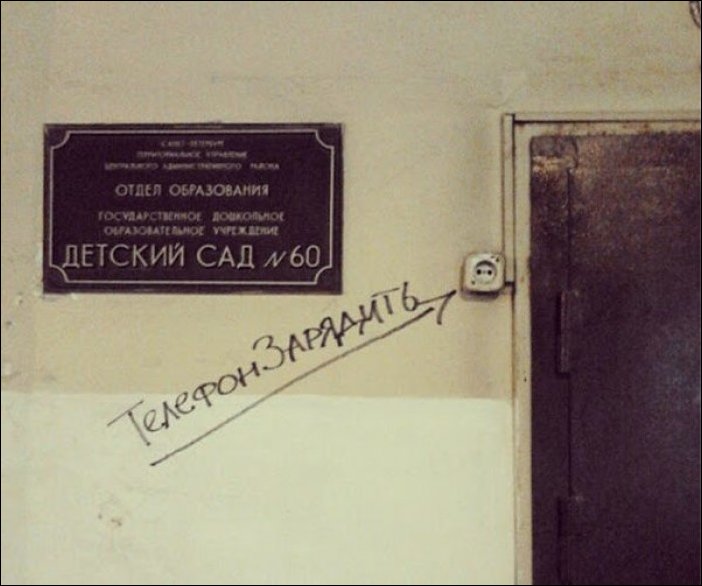 САНКТ-ПЕТЕРБУРГ
ТЕРРИТОРИАЛЬНОЕ УПРАВЛЕНИЕ
ЦЕНТРАЛЬНОГО АДМИНИСТРАТИВНОГО РАЙОНА
ОТДЕЛ ОБРАЗОВАНИЯ
ГОСУДАРСТВЕННОЕ ДОШКОЛЬНОЕ
ОБРАЗОВАТЕЛЬНОЕ УЧРЕЖДЕНИЕ
ДЕТСКИЙ САД №60
ТЕЛЕФОН ЗАРЯДИТЬ